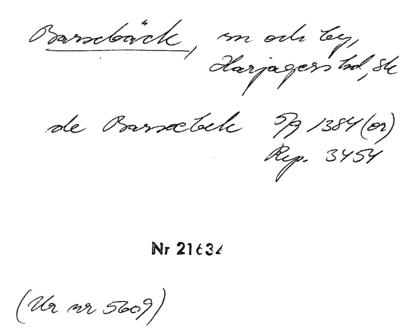 Barsebäck, sn och by,
Harjagers hd, Sk
de Barsæbek 5/9 1384 (or)
Rep. 3454
Nr 21634
(Ur nr 5609)